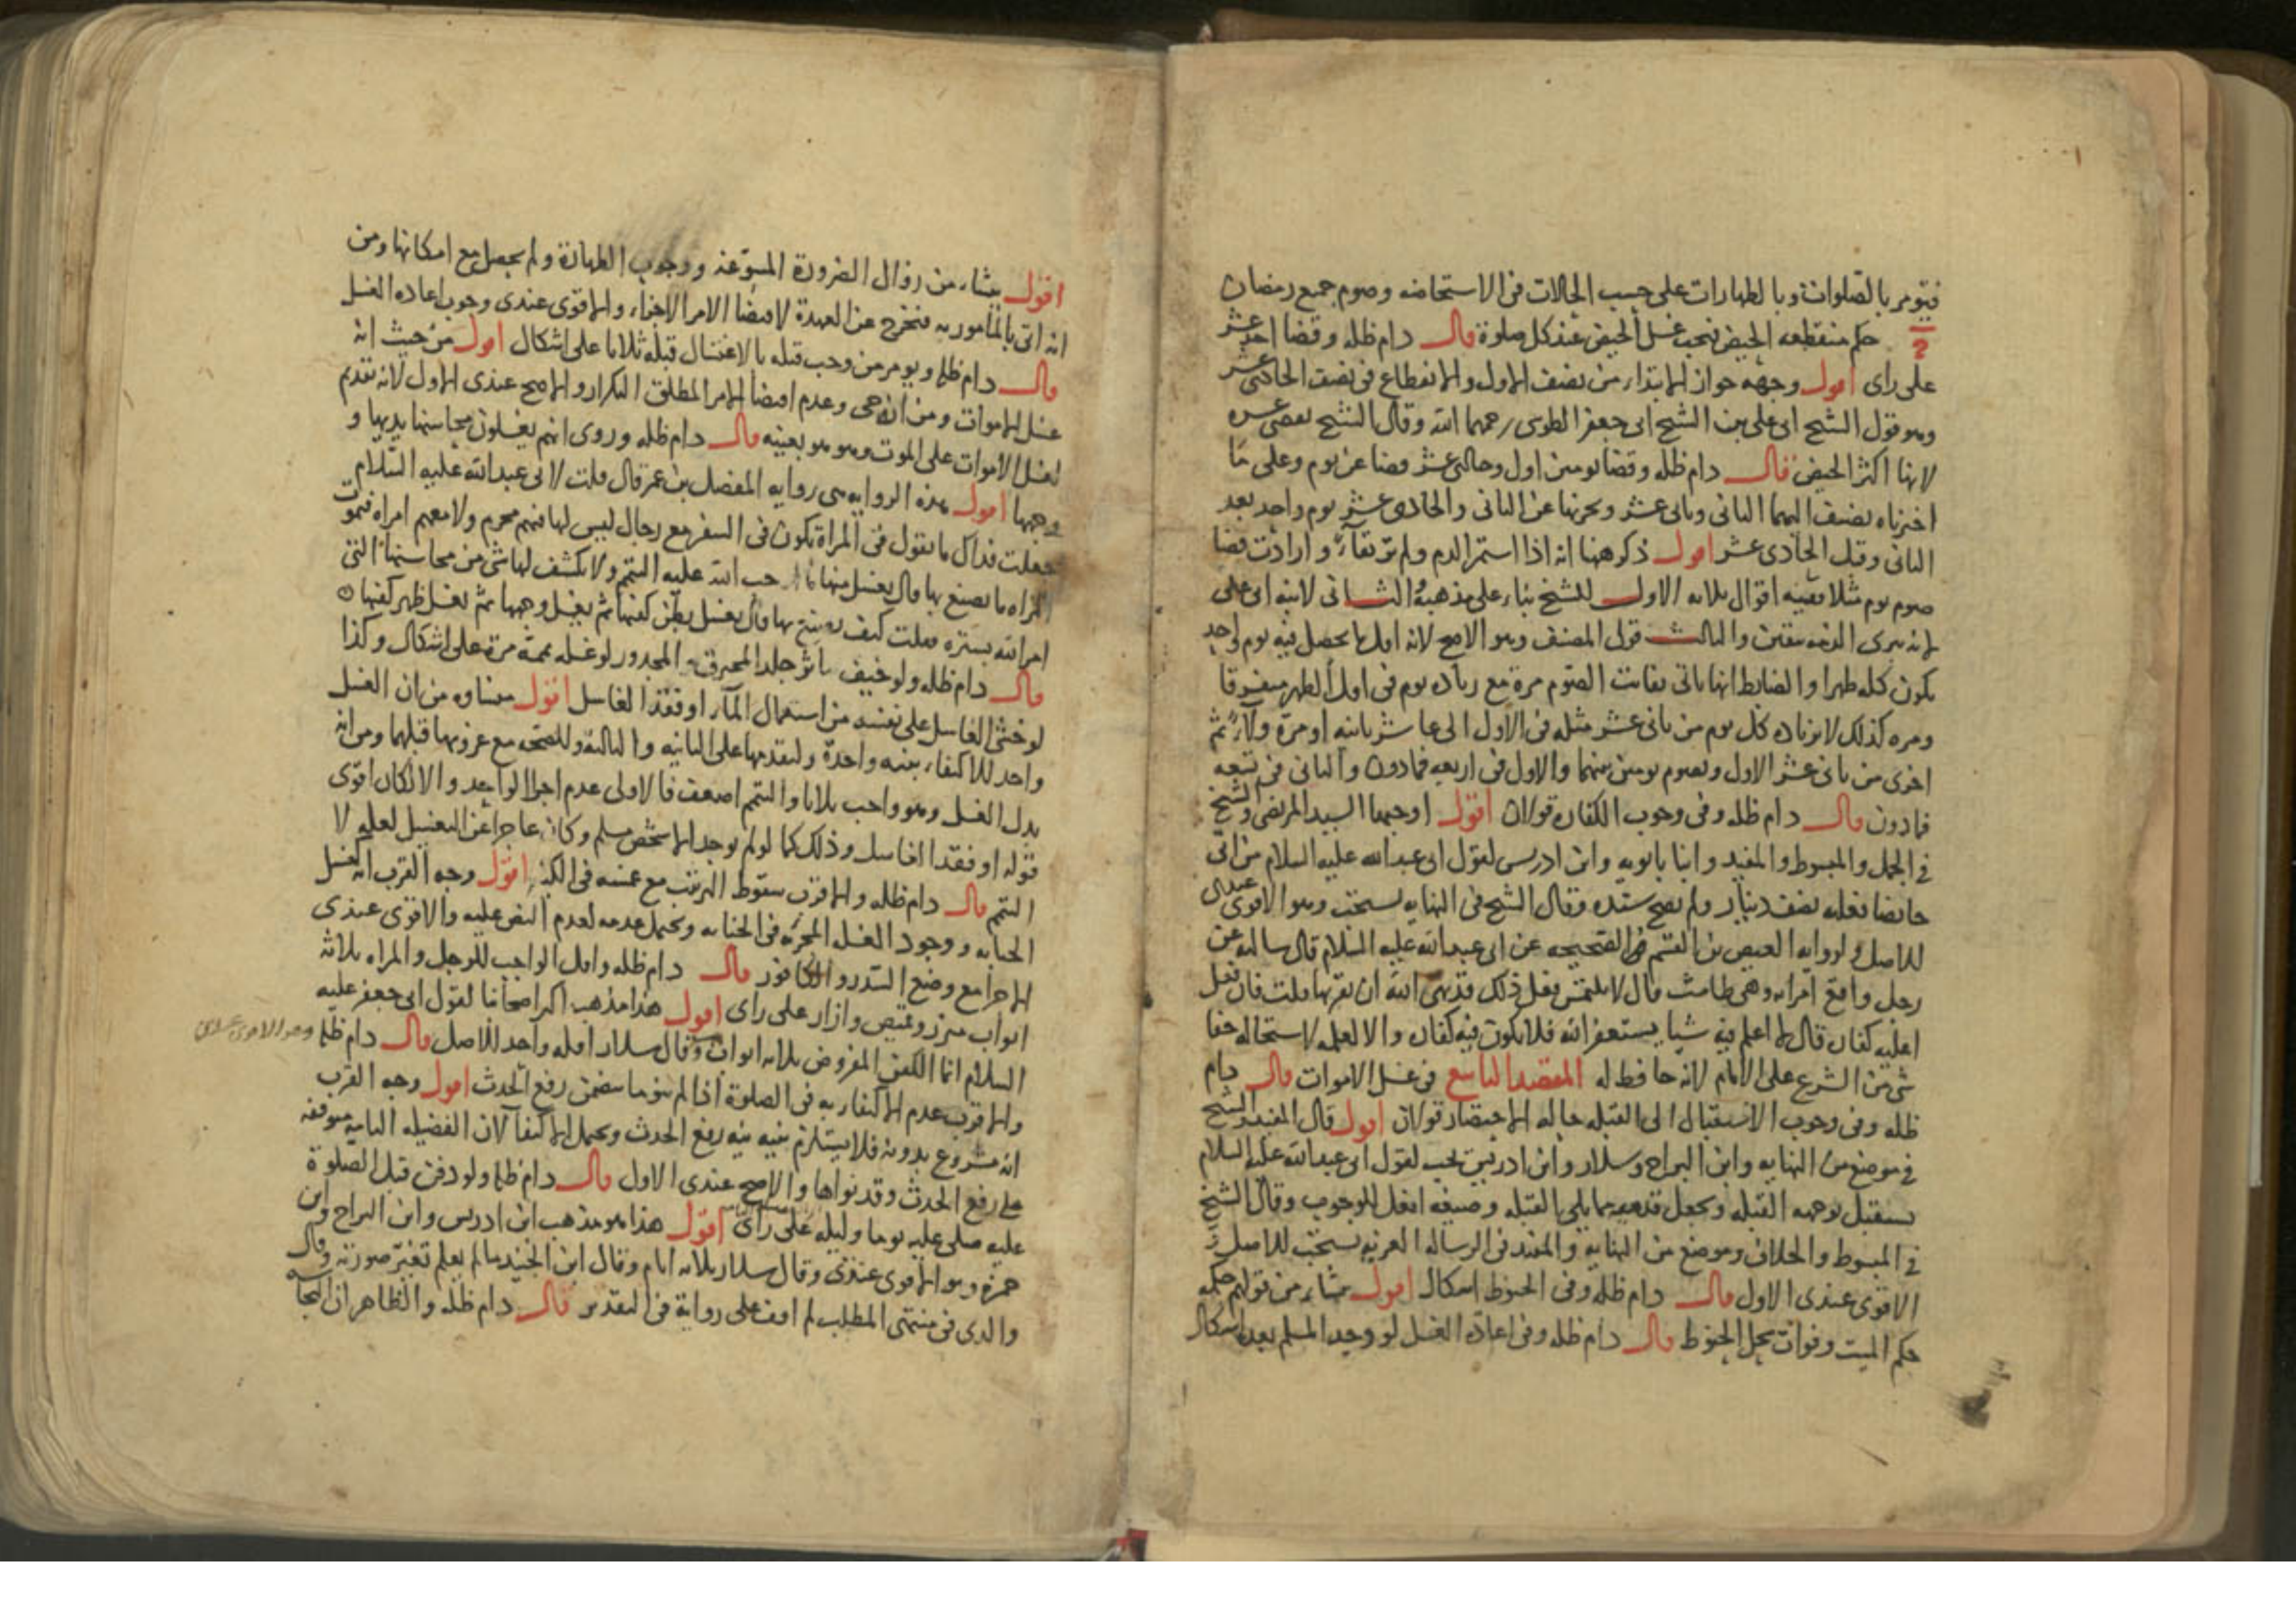 فتومر بالصلوات وبالطهارات على حسب الحالات في الاستحاضه وصوم جميع رمضان
حكم منقطعه الحيض فيجب غسل الحيض عند كل صلوة قال دام ظله وقضا احد عشر
على راى اقول وجهه جواز الابتداء من نصف الاول والانقطاع في نصف الحادى عشر
وهو قول الشيخ ابى على بن الشيخ ابى جعفر الطوسى رحمهما الله وقال الشيخ تقضى عشره
لانها اكثر الحيض قال دام ظله وقضا يومين اول وحادى عشر قضا عن يوم وعلى ما
اخترناه تضيف اليهما الثانى وثانى عشر ويجزيها عن الثانى والحادى عشر يوم واحد بعد
الثانى وقبل الحادى عشر اقول ذكر هنا انه اذا استمر الدم ولم تر نقاء وارادت قضا
صوم يوم مثلا ففيه اقوال ثلاثه الاول للشيخ بناء على مذهبه الثانى لابنه ابى على
والثالث قول المصنف وهو الاصح لانه اول ما يحصل فيه يوم واحد
يكون كله طهرا والضابط انها تاتى بفائت الصوم مرة مع زياده يوم في اول الطهر متفرقا
ومره كذلك لا بزياده كل يوم من ثانى عشر مثله في الاول الى عاشر ثانيه او مرة ولاء ثم
اخرى من ثانى عشر الاول وتصوم يومين بينهما والاول في اربعه فمادون والثانى في تسعه
فمادون قال دام ظله وفى وجوب الكفاره قولان اقول اوجبها السيد المرتضى والشيخ
في الجمل والمبسوط والمفيد وابنا بابويه وابن ادريس لقول ابى عبد الله عليه السلام من اتى
حائضا فعليه نصف دينار ولم يصح سنده وقال الشيخ في النهايه يستحب وهو الاقوى عندى
للاصل ولروايه العيص بن القسم في الصحيحه عن ابى عبد الله عليه السلام قال سالته عن
رجل واقع امراته وهى طامث قال لا يلتمس فعل ذلك قد نهى الله ان يقربها قلت فان فعل
اعليه كفاره قال لا اعلم فيه شيا يستغفر الله فلا يكون فيه كفاره والا لعلمه لاستحاله خفا
شى من الشرع على الامام لانه حافط له المقصد التاسع في غسل الاموات قال دام
ظله وفى وجوب الاستقبال الى القبله حاله الاحتضار قولان اقول قال المفيد والشيخ
في موضع من النهايه وابن البراج وسلار وابن ادريس يجب لقول ابى عبد الله عليه السلام
يستقبل بوجهه القبله ويجعل قدميه مما يلى القبله وصيغه افعل للوجوب وقال الشيخ
في المبسوط والخلاف وموضع من النهايه والمفيد في الرساله الغريه يستحب للاصل و
الاقوى عندى الاول قال دام ظله وفى الحنوط اشكال اقول ينشاء من قولهم حكمه
حكم الميت وفوات محل الحنوط قال دام ظله وفى اعادة الغسل لو وجد المسلم بعده اشكال
اقول ينشاء من زوال الضرورة المسوغة ووجوب الطهارة ولم يحصل مع امكانها ومن
انه اتى بالمأمور به فتخرج عن العهدة لاقتضا الامر الاجزاء والاقوى عندى وجوب اعاده الغسل
قال دام ظله ويومر من وجب قتله بالاغتسال قبله ثلاثا على اشكال اقول من حيث انه
غسل الاموات ومن انه حى وعدم اقتضا الامر المطلق التكرار والاصح عندى الاول لانه تقديم
لغسل الاموات على الموت وهو هو بعينه قال دام ظله وروى انهم يغسلون محاسنها يديها و
وجهها اقول هذه الروايه هى روايه المفضل بن عمر قال قلت لابى عبد الله عليه السلام
جعلت فداك ما تقول في المراة تكون في السفر مع رجال ليس لها فيهم محرم ولا معهم امراه فتموت
المراه ما يصنع بها قال يغسل منها ما اوجب الله عليه التيمم ولا يكشف لها شى من محاسنها التى
امر الله بستره فقلت كيف يصنع بها قال يغسل بطن كفيها ثم يغسل وجهها ثم يغسل ظهر كفيها
قال دام ظله ولو خيف تناثر جلد المحترق والمجدور لو غسله يممه مرة على اشكال وكذا
لو خشى الغاسل على نفسه من استعمال الماء او فقد الغاسل اقول منشاوه من ان الغسل
واحد للاكتفاء بنيه واحدة ولتقدمها على الثانيه والثالثه وللصحه مع عزوبها قبلهما ومن انه
بدل الغسل وهو واجب ثلاثا والتيمم اضعف فالاولى عدم اجزا الواحد والاشكال اقوى
قوله او فقد الغاسل وذلك كما لو لم يوجد الا شخص مسلم وكان عاجزا عن التغسيل لعله لا
التيمم قال دام ظله والاقرب سقوط الترتيب مع غمسه في الكثير اقول وجه القرب انه كغسل
الجنابه ووجود الغسله المجزيه في الجنابه ويحتمل عدمه لعدم النص عليه والاقوى عندى
الاجزا مع وضع السدر والكافور قال دام ظله واقل الواجب للرجل والمراه ثلاثة
اثواب ميزر وقميص وازار على راى اقول هذا مذهب اكثر اصحابنا لقول ابى جعفر عليه
السلام انما الكفن المفروض ثلاثه اثواب وقال سلار اقله واحد للاصل قال دام ظله
وهو الاقوى عندى
والاقرب عدم الاكتفاء به في الصلوة اذا لم ينو ما يتضمن رفع الحدث اقول وجه القرب
انه مشروع بدونه فلا يستلزم نيته نيه رفع الحدث ويحتمل الاكتفا لان الفضيله التامه موقوفه
على رفع الحدث وقد نواها والاصح عندى الاول قال دام ظله ولو دفن قبل الصلوة
عليه صلى عليه يوما وليله على راى اقول هذا هو مذهب ابن ادريس وابن البراج وابن
حمزه وهو الاقوى عندى وقال سلار ثلاثه ايام وقال ابن الجنيد ما لم يعلم تغير صورته وقال
والدى في منتهى المطلب لم اقف على رواية في التقدير قال دام ظله والظاهر ان النجا